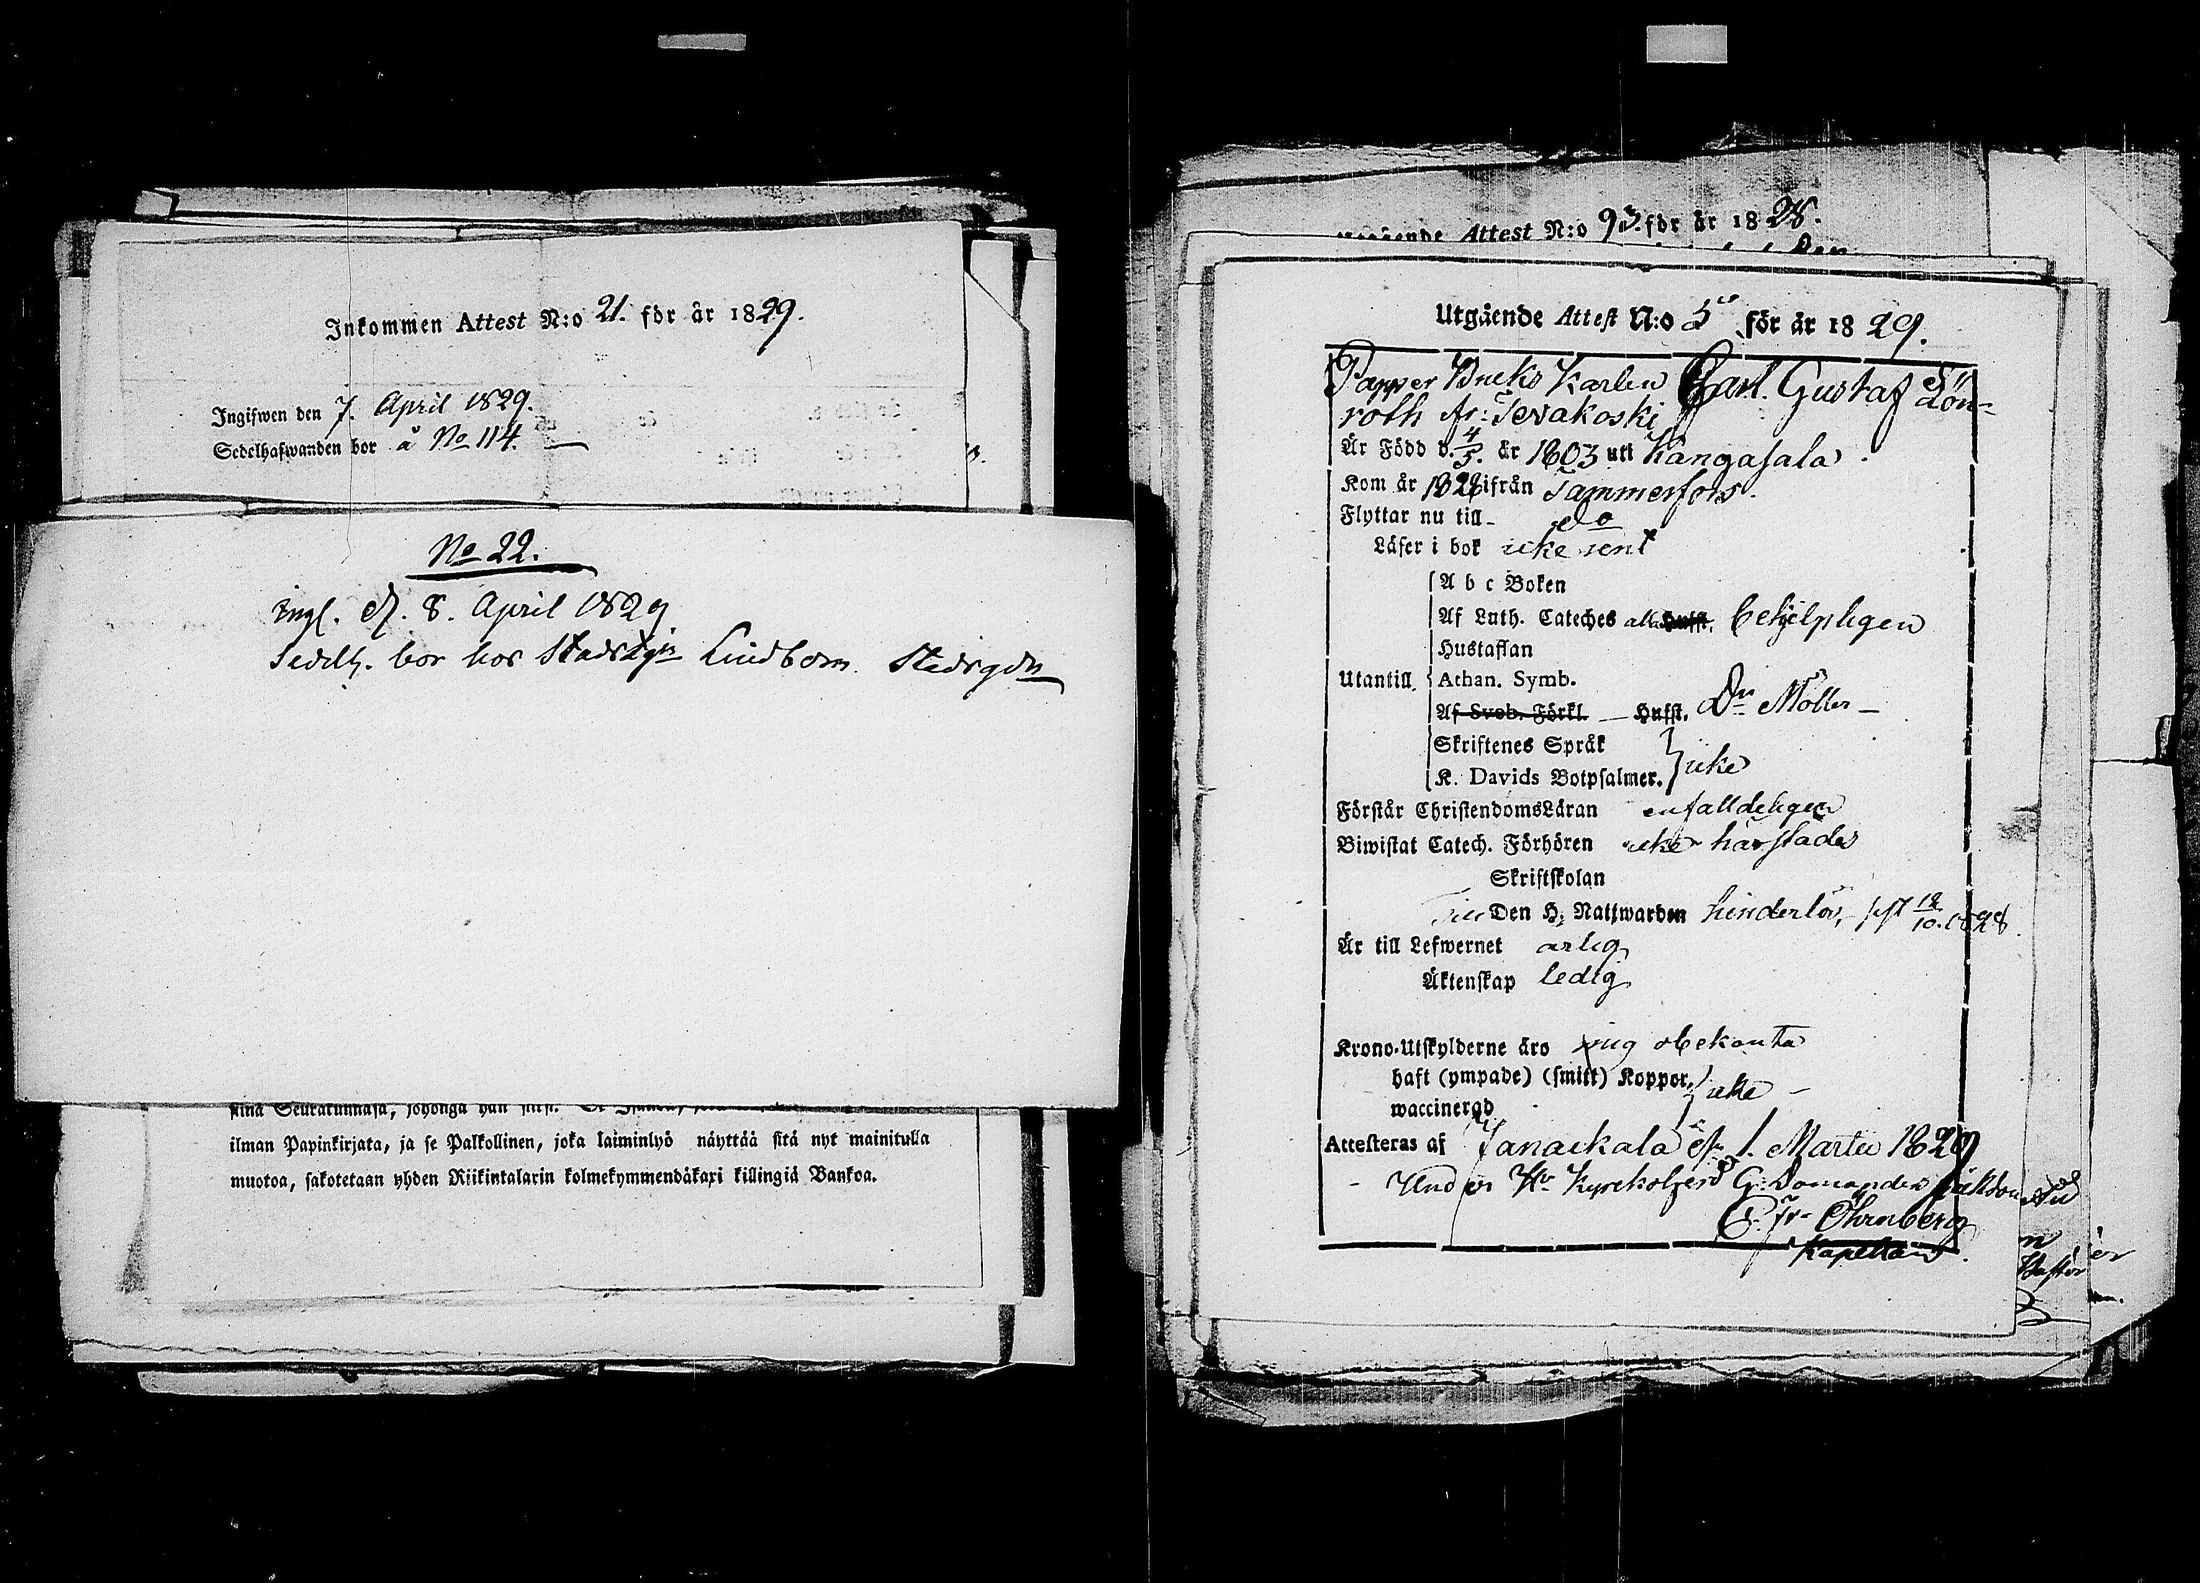 Inkommen Attest N:o 21. för år 1829.
Ingifwen den 7. April 1829.
Sedelhafwanden bor å No 114.
No 22.
Ingl. d. 8. April 1829
Sedelh. bor hos Lindbom
ilman Papinkirjata, ja se Palkollinen, joka laiminlyö näyttää sitä nyt mainitulla
muotoa, sakotetaan yhden Riikintalarin kolmekymmendäkaxi killingiä Bankoa.
Attest N:o 93. för år 1828.
Utgående Attest N:o 5 för år 1829.
Papper Bruks Karlen Carl Gustaf Lön-
roth fr: Tervakoski
Är Född d. 4/5. år 1803 uti Kangasala
Kom år 1828 ifrån Tammerfors.
Flyttar nu till do
Läser i bok icke rent
A b c Boken
Af Luth. Cateches alla Hufst. behjelpligen
Hustaflan
Utantill Athan. Symb.
Af Sveb. Förkl. — Hufst. Dr Möller —
Skriftenes Språk
K. Davids Botpsalmer. icke
Förstår ChristendomsLäran enfalldeligen
Biwistat Catech. Förhören icke härstädes
Skriftskolan
Den H. Nattwarden hinderlös, sist 12/10. 1828.
Är till Lefwernet ärlig
Äktenskap ledig
Krono-Utskylderne äro mig obekanta
haft (ympade) (smitt) Koppor,
waccinerad icke —
Attesteras af Janackala d. 1. Martii 1829
Under Hr Kyrkoherd G:
Fr Öhrnberg
Kapellan.